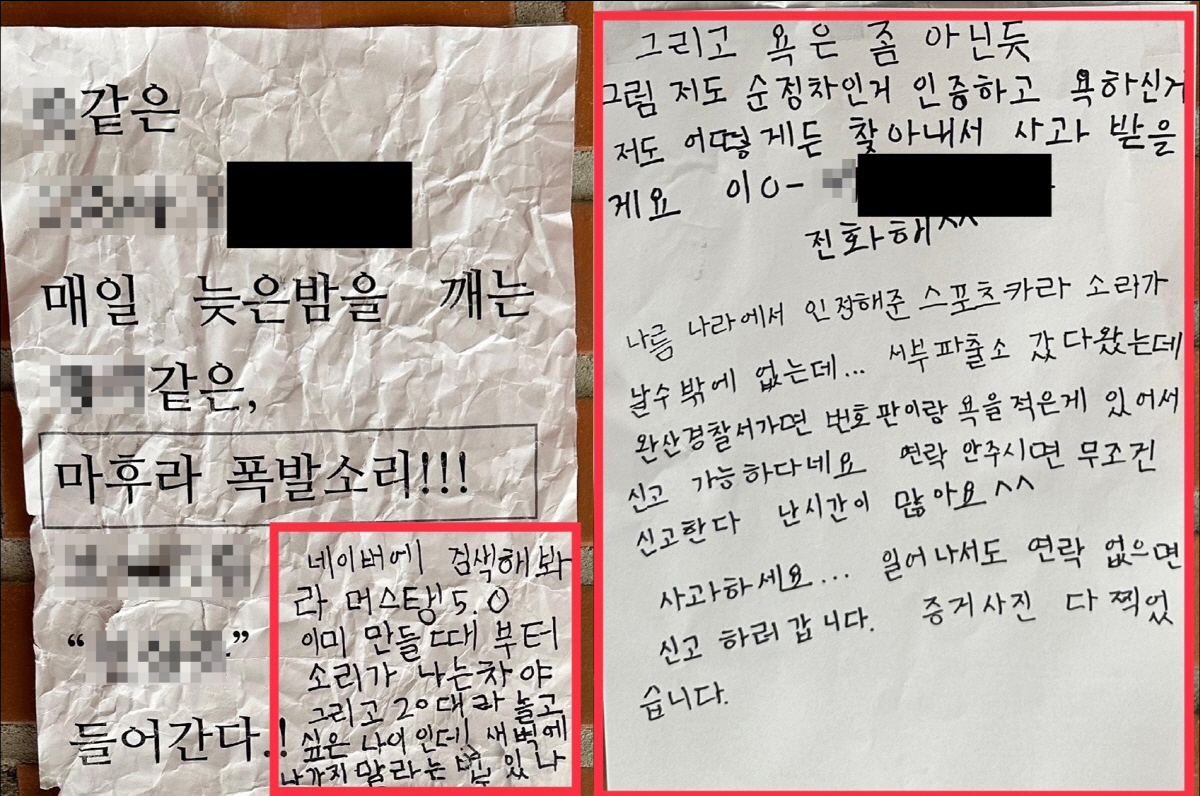 같은
매일 늦은밤을 깨는
같은,
마후라 폭발소리!!!
“ .”
들어간다.!
네이버에 검색해봐
라 머스탱 5.0
이미 만들때 부터
소리가 나는차야
그리고 20대라 놀고
싶은 나이인데 새벽에
나가지 말라는 법 있나
그리고 욕은 좀 아닌듯
그럼 저도 순정차인거 인증하고 욕하신거
저도 어떻게든 찾아내서 사과 받을
게요 010-
전화해^^
나름 나라에서 인정해준 스포츠카라 소리가
날수 밖에 없는데... 서부파출소 갔다왔는데
완산경찰서가면 번호판이랑 욕을 적은게 있어서
신고 가능하다네요 연락 안주시면 무조건
신고한다 난시간이 많아요^^
사과하세요... 일어나서도 연락 없으면
신고 하러 갑니다. 증거사진 다 찍었
습니다.